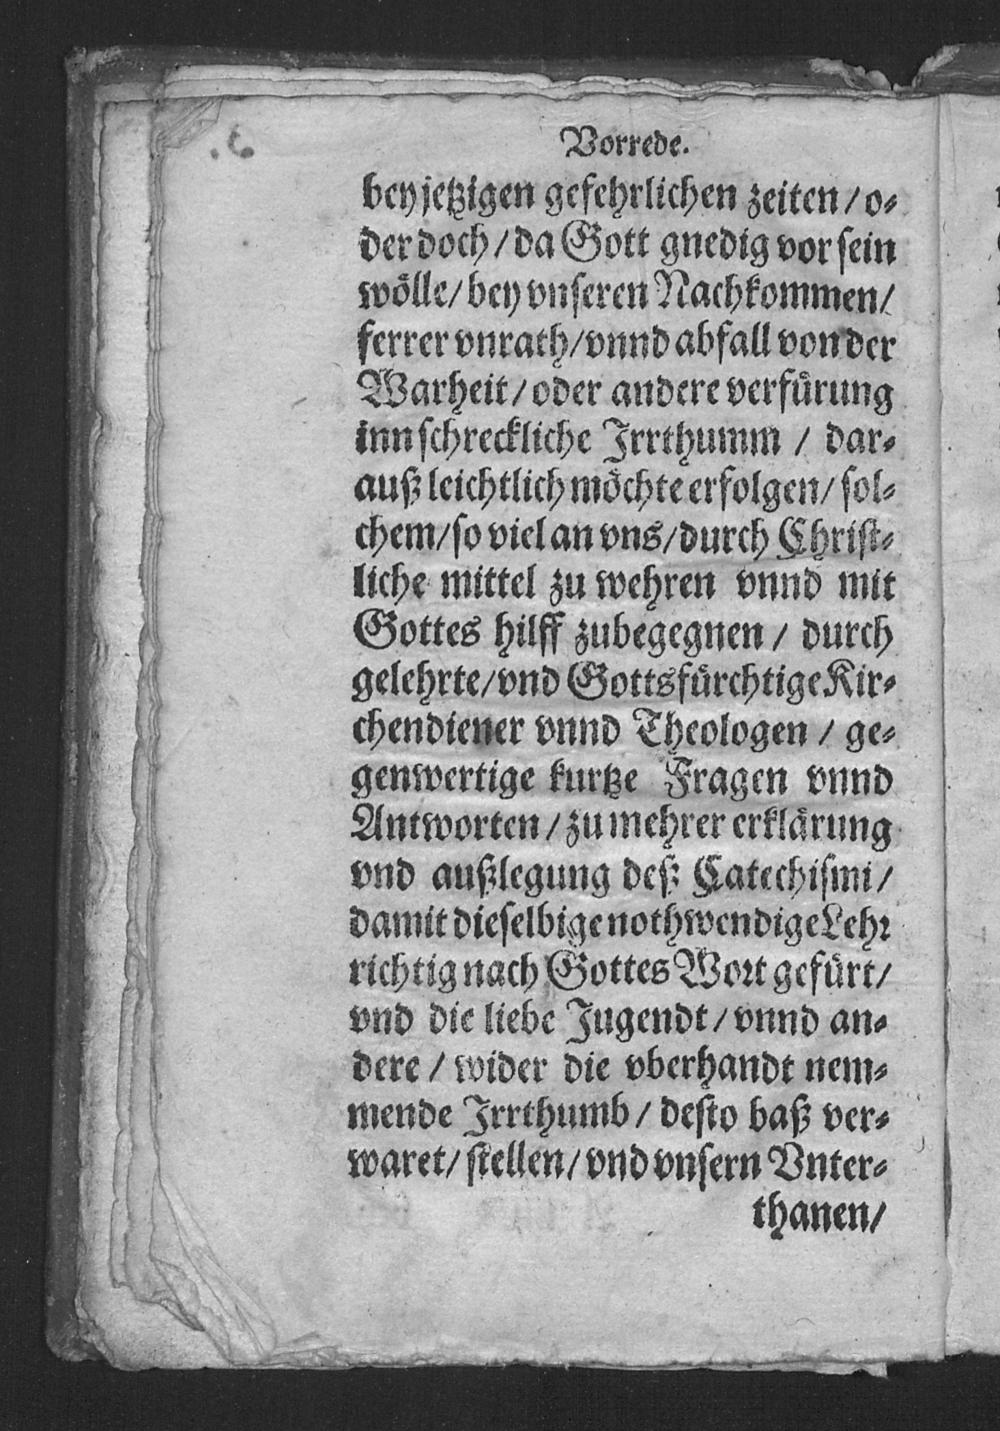 Vorrede.
bey jetzigen gefehrlichen zeiten / o⸗
der doch / da Gott gnedig vor sein
wölle / bey vnseren Nachkommen /
ferrer vnrath / vnnd abfall von der
Warheit / oder andere verfürung
inn schreckliche Irrthumm / dar⸗
auß leichtlich möchte erfolgen / sol⸗
chem / so viel an vns / durch Christ⸗
liche mittel zu wehren vnnd mit
Gottes hilff zubegegnen / durch
gelehrte / vnd Gottsfürchtige Kir⸗
chendiener vnnd Theologen / ge⸗
genwertige kurtze Fragen vnnd
Antworten / zu mehrer erklärung
vnd außlegung deß Catechismi /
damit dieselbige nothwendige Lehr
richtig nach Gottes Wort gefürt /
vnd die liebe Jugendt / vnnd an⸗
dere / wider die vberhandt nem⸗
mende Irrthumb / desto baß ver⸗
waret / stellen / vnd vnsern Vnter⸗
thanen /